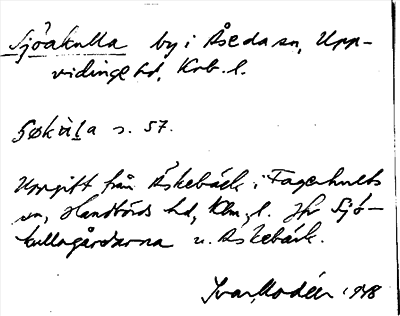 Sjöakulla by i Åseda sn, Upp-
vidinge hd, Krb. l.
s. 57.
Uppgift från Äskebäck i Fagerhults
sn, Handbörds hd, Klm. l. Jfr Sjö-
kullagårdarna u. Äskebäck.
Ivar Modéer 1938